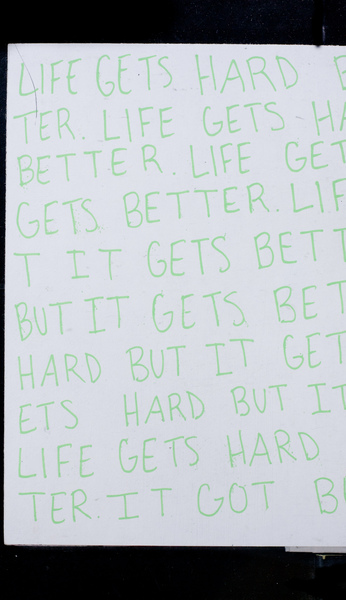 LIFE GETS HARD B
TER. LIFE GETS HA
BETTER. LIFE GET
GETS BETTER. LIF
T IT GETS BETT
BUT IT GETS BET
HARD BUT IT GET
ETS HARD BUT IT
LIFE GETS HARD
TER. IT GOT BU